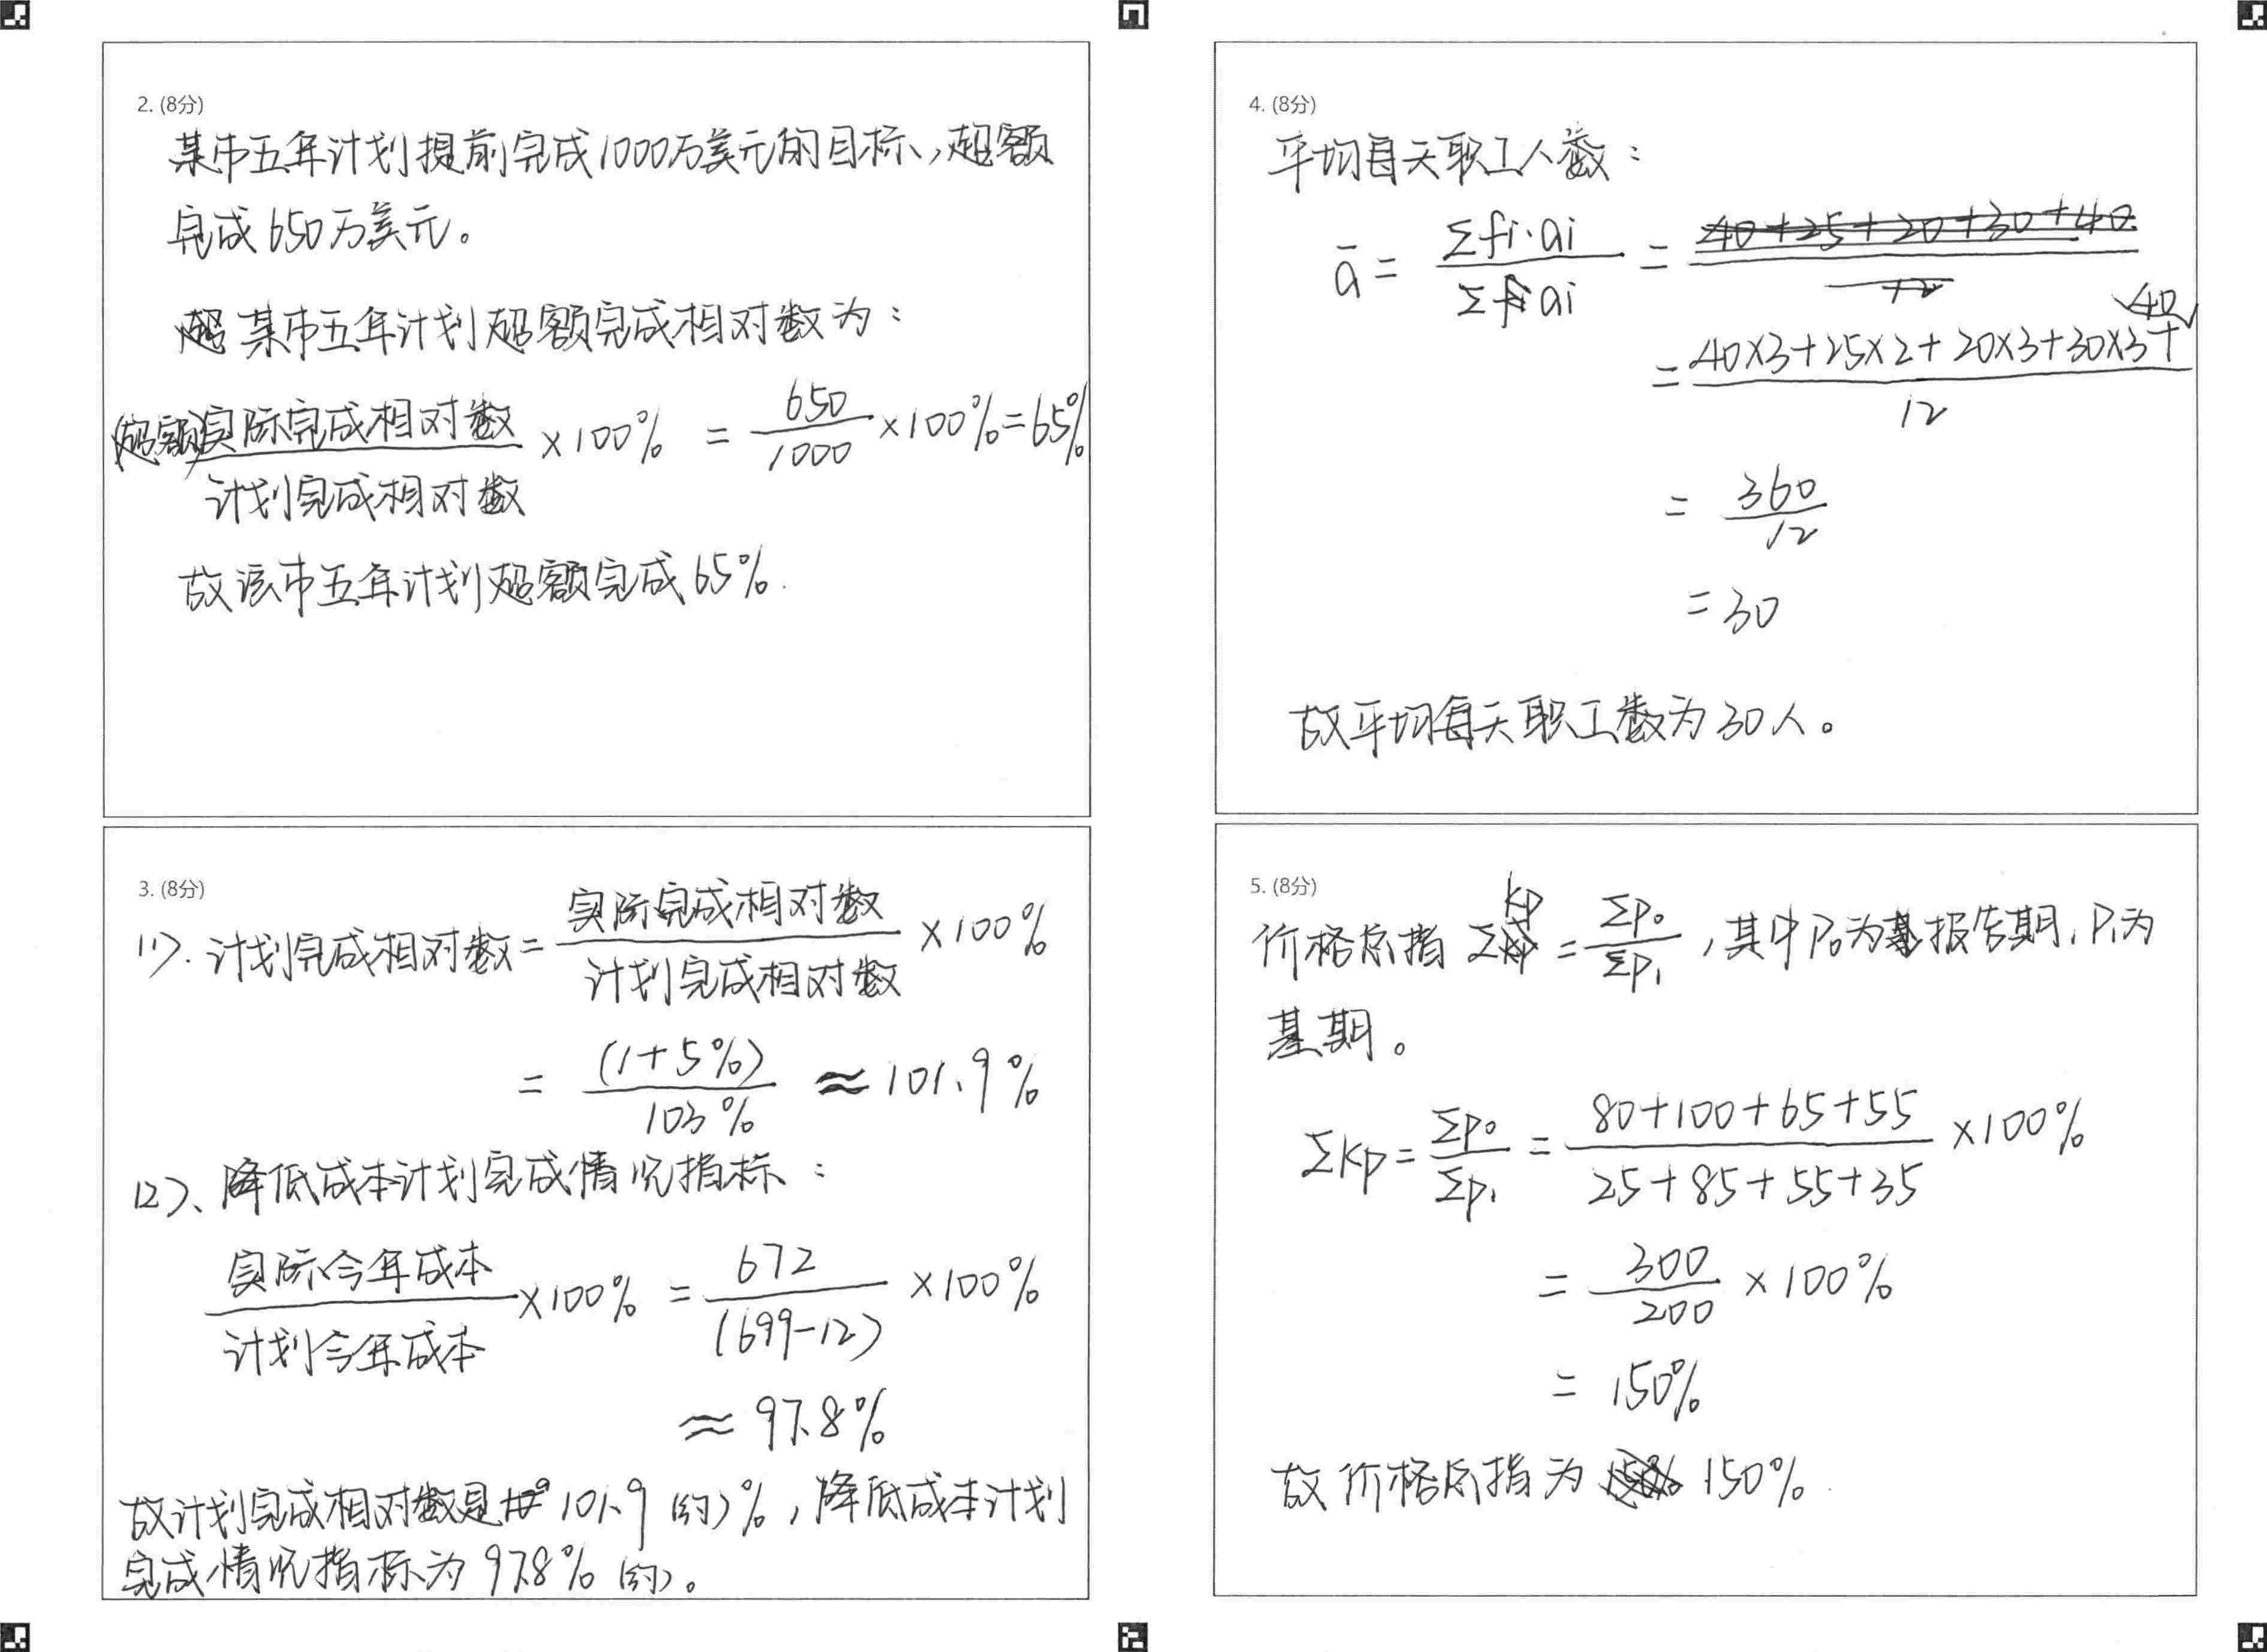 2. (8分)
某市五年计划提前完成1000万美元的目标,超额
完成650万美元。
某市五年计划超额完成相对数为:
(超额)实际完成相对数/计划完成相对数 ×100% = 650/1000 ×100%=65%
故该市五年计划超额完成65%.
3. (8分)
(1). 计划完成相对数= 实际完成相对数/计划完成相对数 ×100%
= (1+5%)/103% ≈101.9%
(2)、降低成本计划完成情况指标:
实际今年成本/计划今年成本 ×100% = 672/(699-12) ×100%
≈ 97.8%
故计划完成相对数是 101.9(约)%,降低成本计划
完成情况指标为97.8%(约)。
4. (8分)
平均每天职工人数:
ā= Σfi·ai/Σai = 40+25+20+30+40/12
= 40×3+25×2+20×3+30×3+40/12
= 360/12
=30
故平均每天职工数为30人。
5. (8分)
价格总指 Σkp = Σp₀/Σp₁ ,其中P₀为报告期,P₁为
基期。
Σkp= Σp₀/Σp₁ = 80+100+65+55/25+85+55+35 ×100%
= 300/200 ×100%
= 150%
故价格总指为 150%.